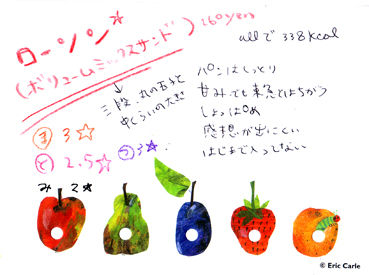 ローソン☆
(ボリュームミックスサンド) 260yen
allで 338kcal
パンはしっとり
甘みでも東急とはちがう
しょっぱめ
感想が出にくい
はじまで入ってない
三段。丸の五すと
中くらいの大き
ま 3☆
と 2.5☆
う 3☆
み 2☆
© Eric Carle